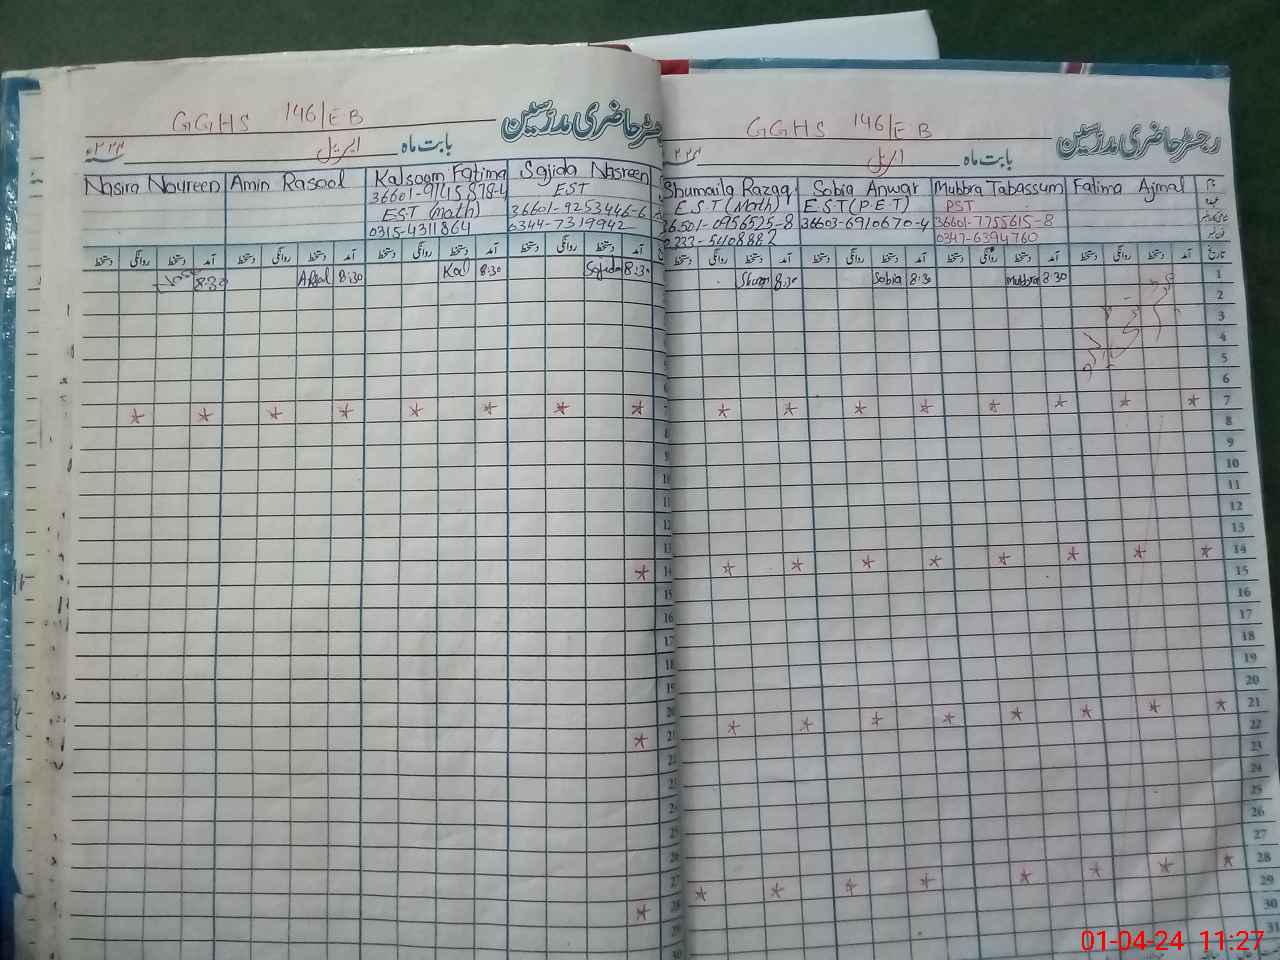 GGHS 146/EB
رجسٹر حاضری مدرسین
بابت ماہ اپریل
Nasira Noureen Amin Rasool Kalsoom Fatima Sajida Nasreen
36601-9141587-4 EST
EST (math) 36601-9253446-6
0315-4311864 0344-7319942
دستخط روانگی دستخط آمد دستخط روانگی دستخط آمد دستخط روانگی دستخط آمد دستخط روانگی دستخط آمد
8:30 Afzal 8:30 Kal 8:30 Sajida 8:30
GGHS 146/EB
رجسٹر حاضری مدرسین
بابت ماہ اپریل
Shumaila Razaq Sobia Anwar Mubbra Tabassum Fatima Ajmal
E.S.T (Math) E.S.T (P.E.T) PST
36501-0956525-8 36603-6910670-4 36601-7755615-8
0333-5408882 0347-6394760
دستخط روانگی دستخط آمد دستخط روانگی دستخط آمد دستخط روانگی دستخط آمد دستخط روانگی دستخط آمد تاریخ
Shum 8:30 Sobia 8:30 Mubbra 8:30 1
2
3
4
5
6
7
8
9
10
11
12
13
14
15
16
17
18
19
20
21
22
23
24
25
26
27
28
29
30
31
01-04-24 11:27